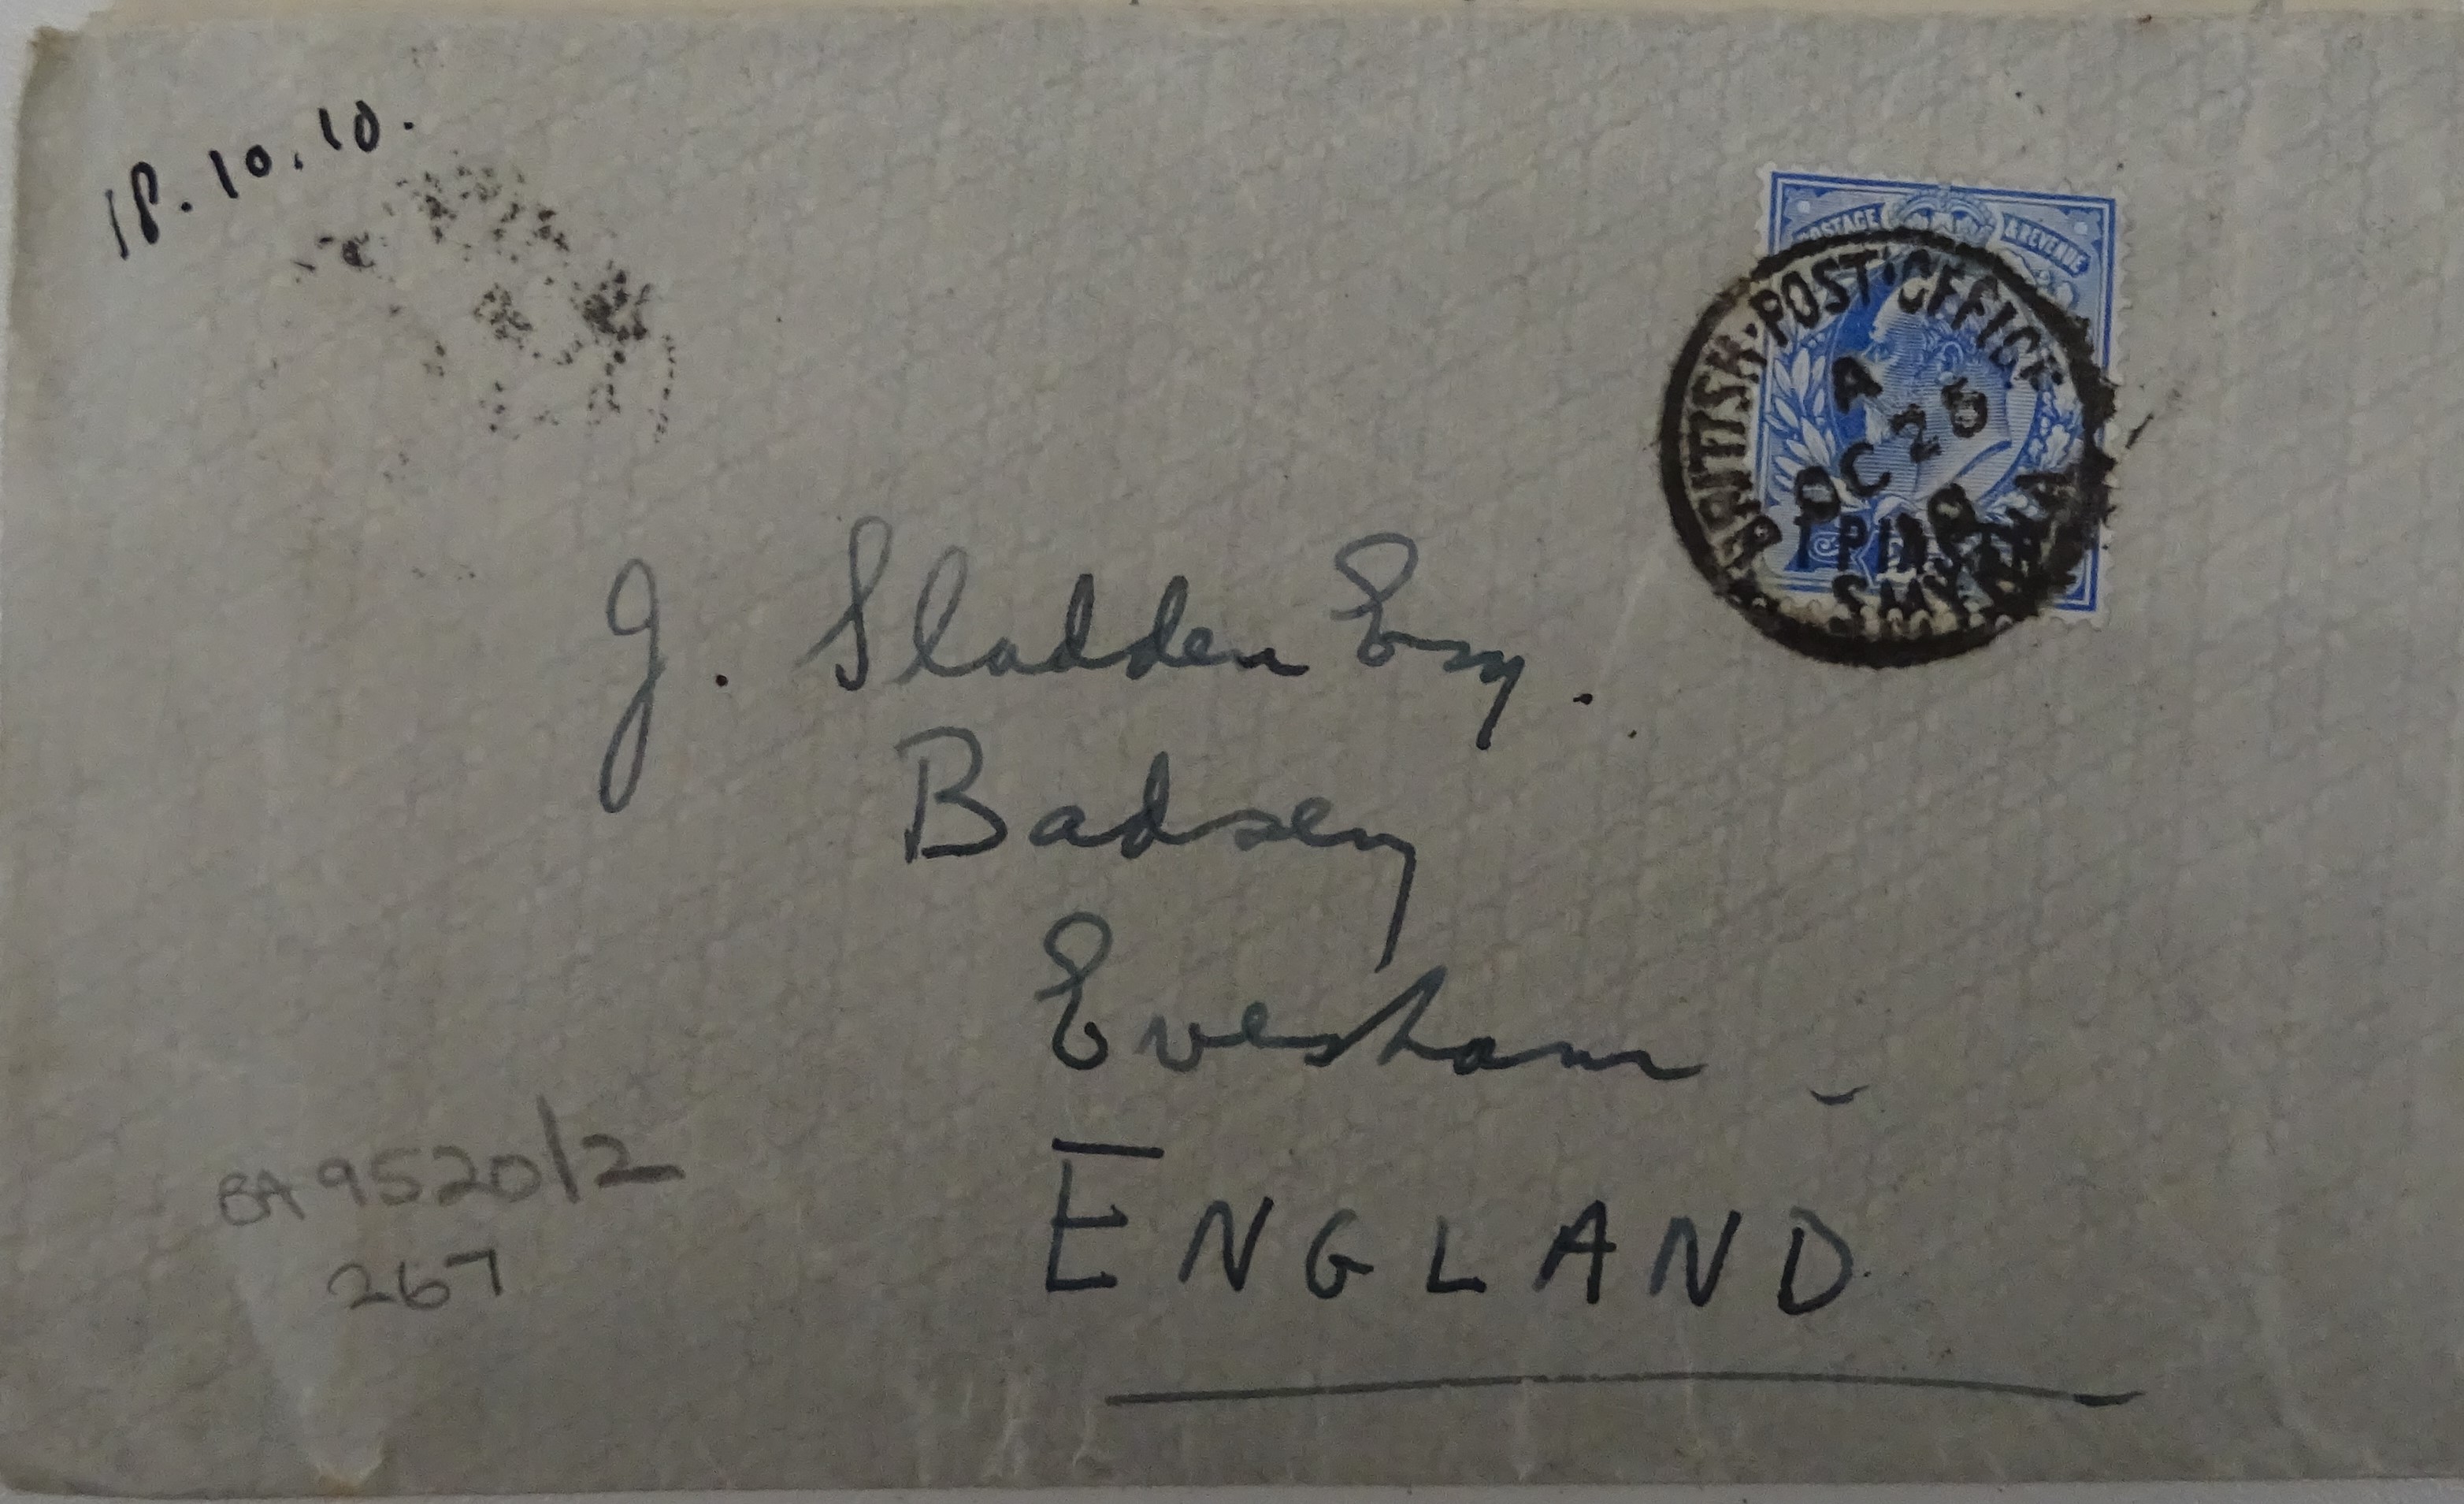 18.10.10.
POSTAGE & REVENUE
BRITISH·POST·OFFICE
A
OC 25
10
SMYRNA
J. Sladden Esq.
Badsey
Evesham -
ENGLAND
BA 9520/2
267